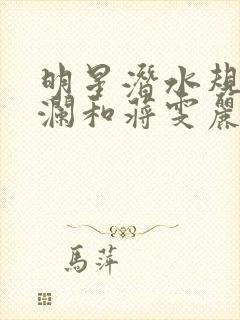 明星潛水規
瀾和蔣雯麗
馬萍